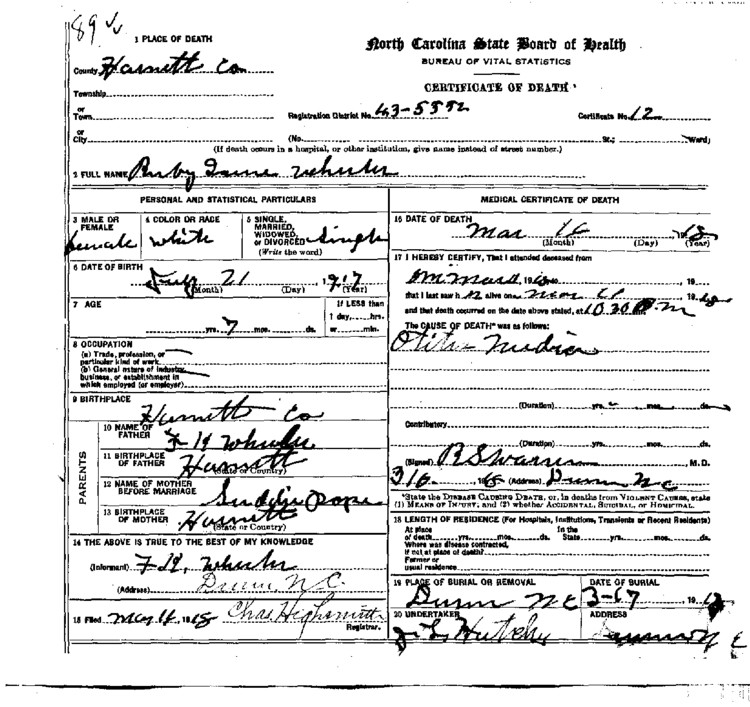 89
1 PLACE OF DEATH
North Carolina State Board of Health
BUREAU OF VITAL STATISTICS
CERTIFICATE OF DEATH
County Harnett Co
Township
or
Town
Registration District No. 43-5552
Certificate No. 12
or
City (No. St.; Ward)
(If death occurs in a hospital, or other institution, give name instead of street number.)
2 FULL NAME Ruby Wheeler
PERSONAL AND STATISTICAL PARTICULARS
3 MALE OR FEMALE female
4 COLOR OR RACE white
5 SINGLE, MARRIED, WIDOWED, or DIVORCED Single
(Write the word)
6 DATE OF BIRTH
July 21 1917
(Month) (Day) (Year)
7 AGE
If LESS than
1 day, hrs.
yrs. 7 mos. ds. or min.
8 OCCUPATION
(a) Trade, profession, or
particular kind of work
(b) General nature of industry,
business, or establishment in
which employed (or employer)
9 BIRTHPLACE
Harnett Co
PARENTS
10 NAME OF FATHER F H Wheeler
11 BIRTHPLACE OF FATHER Harnett
(State or Country)
12 NAME OF MOTHER BEFORE MARRIAGE Pope
13 BIRTHPLACE OF MOTHER Harnett
(State or Country)
14 THE ABOVE IS TRUE TO THE BEST OF MY KNOWLEDGE
(Informant) F H Wheeler
(Address) Dunn, N.C.
15 Filed 1918 Chas Highsmith
Registrar.
MEDICAL CERTIFICATE OF DEATH
16 DATE OF DEATH
Mar 16 1918
(Month) (Day) (Year)
17 I HEREBY CERTIFY, That I attended deceased from
, 19
that I last saw h alive on
and that death occurred on the date above stated, at 10.30 P.m
The CAUSE OF DEATH* was as follows:
Otitis Media
(Duration) yrs. mos. ds.
Contributory
(Duration) yrs. mos. ds.
(Signed) , M.D.
(Address) Dunn N C
*State the DISEASE CAUSING DEATH, or, in deaths from VIOLENT CAUSES, state
(1) MEANS OF INJURY; and (2) whether ACCIDENTAL, SUICIDAL, or HOMICIDAL.
18 LENGTH OF RESIDENCE (For Hospitals, Institutions, Transients or Recent Residents)
At place In the
of death yrs. mos. ds. State yrs. mos. ds.
Where was disease contracted,
if not at place of death?
Former or
usual residence
19 PLACE OF BURIAL OR REMOVAL DATE OF BURIAL
Dunn N C 3-17 1918
20 UNDERTAKER ADDRESS
J. L. Dunn N C